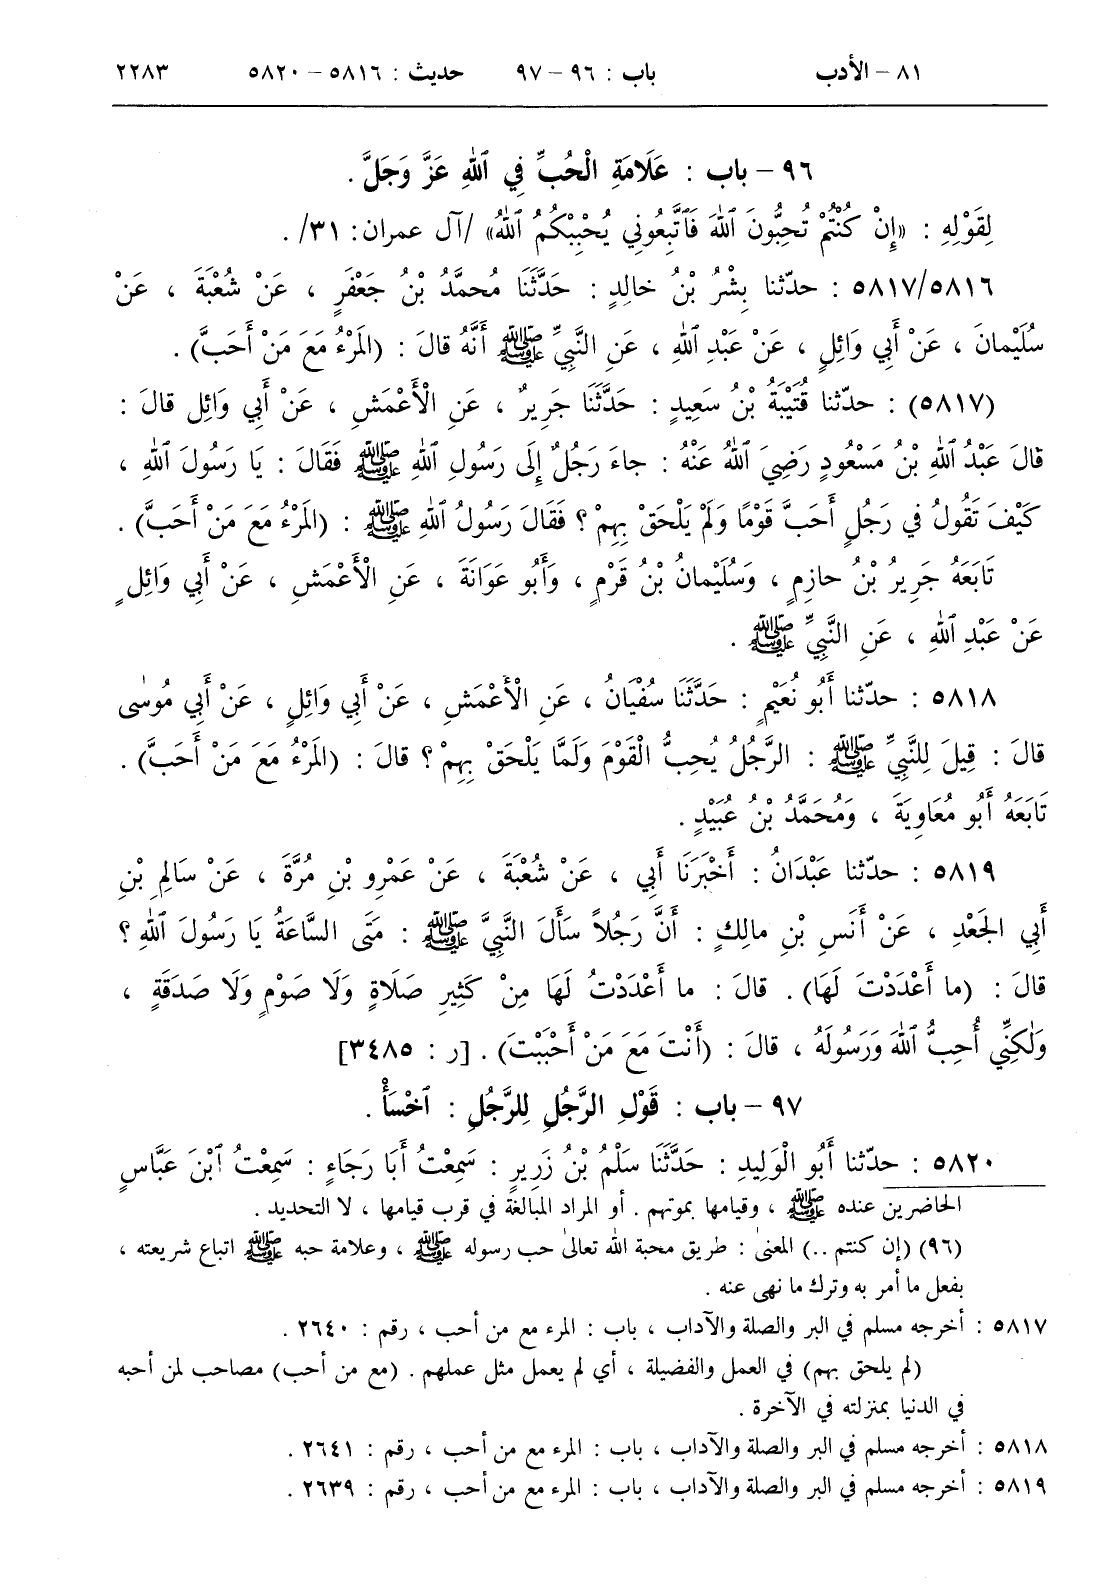 ٨١ – الأدب باب : ٩٦ – ٩٧ حديث : ٥٨١٦ – ٥٨٢٠ ٢٢٨٣
٩٦ – باب : عَلَامَةِ الْحُبِّ فِي ٱللهِ عَزَّ وَجَلَّ .
لِقَوْلِهِ : «إِنْ كُنْتُمْ تُحِبُّونَ ٱللهَ فَٱتَّبِعُونِي يُحْبِبْكُمُ ٱللهُ» /آل عمران: ٣١/ .
٥٨١٧/٥٨١٦ : حدّثنا بِشْرُ بْنُ خالِدٍ : حَدَّثَنَا مُحمَّدُ بْنُ جَعْفَرٍ ، عَنْ شُعْبَةَ ، عَنْ
سُلَيْمانَ ، عَنْ أَبِي وَائِلٍ ، عَنْ عَبْدِ ٱللهِ ، عَنِ النَّبِيِّ ﷺ أَنَّهُ قالَ : (المَرْءُ مَعَ مَنْ أَحَبَّ) .
(٥٨١٧) : حدّثنا قُتَيْبَةُ بْنُ سَعِيدٍ : حَدَّثَنَا جَرِيرٌ ، عَنِ الْأَعْمَشِ ، عَنْ أَبِي وَائِل قالَ :
قالَ عَبْدُ ٱللهِ بْنُ مَسْعُودٍ رَضِيَ ٱللهُ عَنْهُ : جاءَ رَجُلٌ إِلَى رَسُولِ ٱللهِ ﷺ فَقَالَ : يَا رَسُولَ ٱللهِ ،
كَيْفَ تَقُولُ في رَجُلٍ أَحَبَّ قَوْمًا وَلَمْ يَلْحَقْ بِهِمْ ؟ فَقَالَ رَسُولُ ٱللهِ ﷺ : (المَرْءُ مَعَ مَنْ أَحَبَّ) .
تَابَعَهُ جَرِيرُ بْنُ حازِمٍ ، وَسُلَيْمانُ بْنُ قَرْمٍ ، وَأَبُو عَوَانَةَ ، عَنِ الْأَعْمَشِ ، عَنْ أَبِي وَائِلٍ
عَنْ عَبْدِ ٱللهِ ، عَنِ النَّبِيِّ ﷺ .
٥٨١٨ : حدّثنا أَبُو نُعَيْمٍ : حَدَّثَنَا سُفْيَانُ ، عَنِ الْأَعْمَشِ ، عَنْ أَبِي وَائِلٍ ، عَنْ أَبِي مُوسٰى
قالَ : قِيلَ لِلنَّبِيِّ ﷺ : الرَّجُلُ يُحِبُّ الْقَوْمَ وَلَمَّا يَلْحَقْ بِهِمْ ؟ قالَ : (المَرْءُ مَعَ مَنْ أَحَبَّ) .
تَابَعَهُ أَبُو مُعَاوِيَةَ ، وَمُحَمَّدُ بْنُ عُبَيْدٍ .
٥٨١٩ : حدّثنا عَبْدَانُ : أَخْبَرَنَا أَبِي ، عَنْ شُعْبَةَ ، عَنْ عَمْرِو بْنِ مُرَّةَ ، عَنْ سَالِمِ بْنِ
أَبِي الجَعْدِ ، عَنْ أَنَسِ بْنِ مالِكٍ : أَنَّ رَجُلاً سَأَلَ النَّبِيَّ ﷺ : مَتَى السَّاعَةُ يَا رَسُولَ ٱللهِ ؟
قالَ : (ما أَعْدَدْتَ لَهَا) . قالَ : ما أَعْدَدْتُ لَهَا مِنْ كَثِيرِ صَلَاةٍ وَلَا صَوْمٍ وَلَا صَدَقَةٍ ،
وَلٰكِنِّي أُحِبُّ ٱللهَ وَرَسُولَهُ ، قالَ : (أَنْتَ مَعَ مَنْ أَحْبَبْتَ) . [ر : ٣٤٨٥]
٩٧ – باب : قَوْلِ الرَّجُلِ لِلرَّجُلِ : ٱخْسَأْ .
٥٨٢٠ : حدّثنا أَبُو الْوَلِيدِ : حَدَّثَنَا سَلْمُ بْنُ زَرِيرٍ : سَمِعْتُ أَبَا رَجَاءٍ : سَمِعْتُ ٱبْنَ عَبَّاسٍ
الحاضرين عنده ﷺ ، وقيامها بموتهم . أو المراد المبالغة في قرب قيامها ، لا التحديد .
(٩٦) (إن كنتم ..) المعنىٰ : طريق محبة الله تعالىٰ حب رسوله ﷺ ، وعلامة حبه ﷺ اتباع شريعته ،
بفعل ما أمر به وترك ما نهى عنه .
٥٨١٧ : أخرجه مسلم في البر والصلة والآداب ، باب : المرء مع من أحب ، رقم : ٢٦٤٠ .
(لم يلحق بهم) في العمل والفضيلة ، أي لم يعمل مثل عملهم . (مع من أحب) مصاحب لمن أحبه
في الدنيا بمنزلته في الآخرة .
٥٨١٨ : أخرجه مسلم في البر والصلة والآداب ، باب : المرء مع من أحب ، رقم : ٢٦٤١ .
٥٨١٩ : أخرجه مسلم في البر والصلة والآداب ، باب : المرء مع من أحب ، رقم : ٢٦٣٩ .